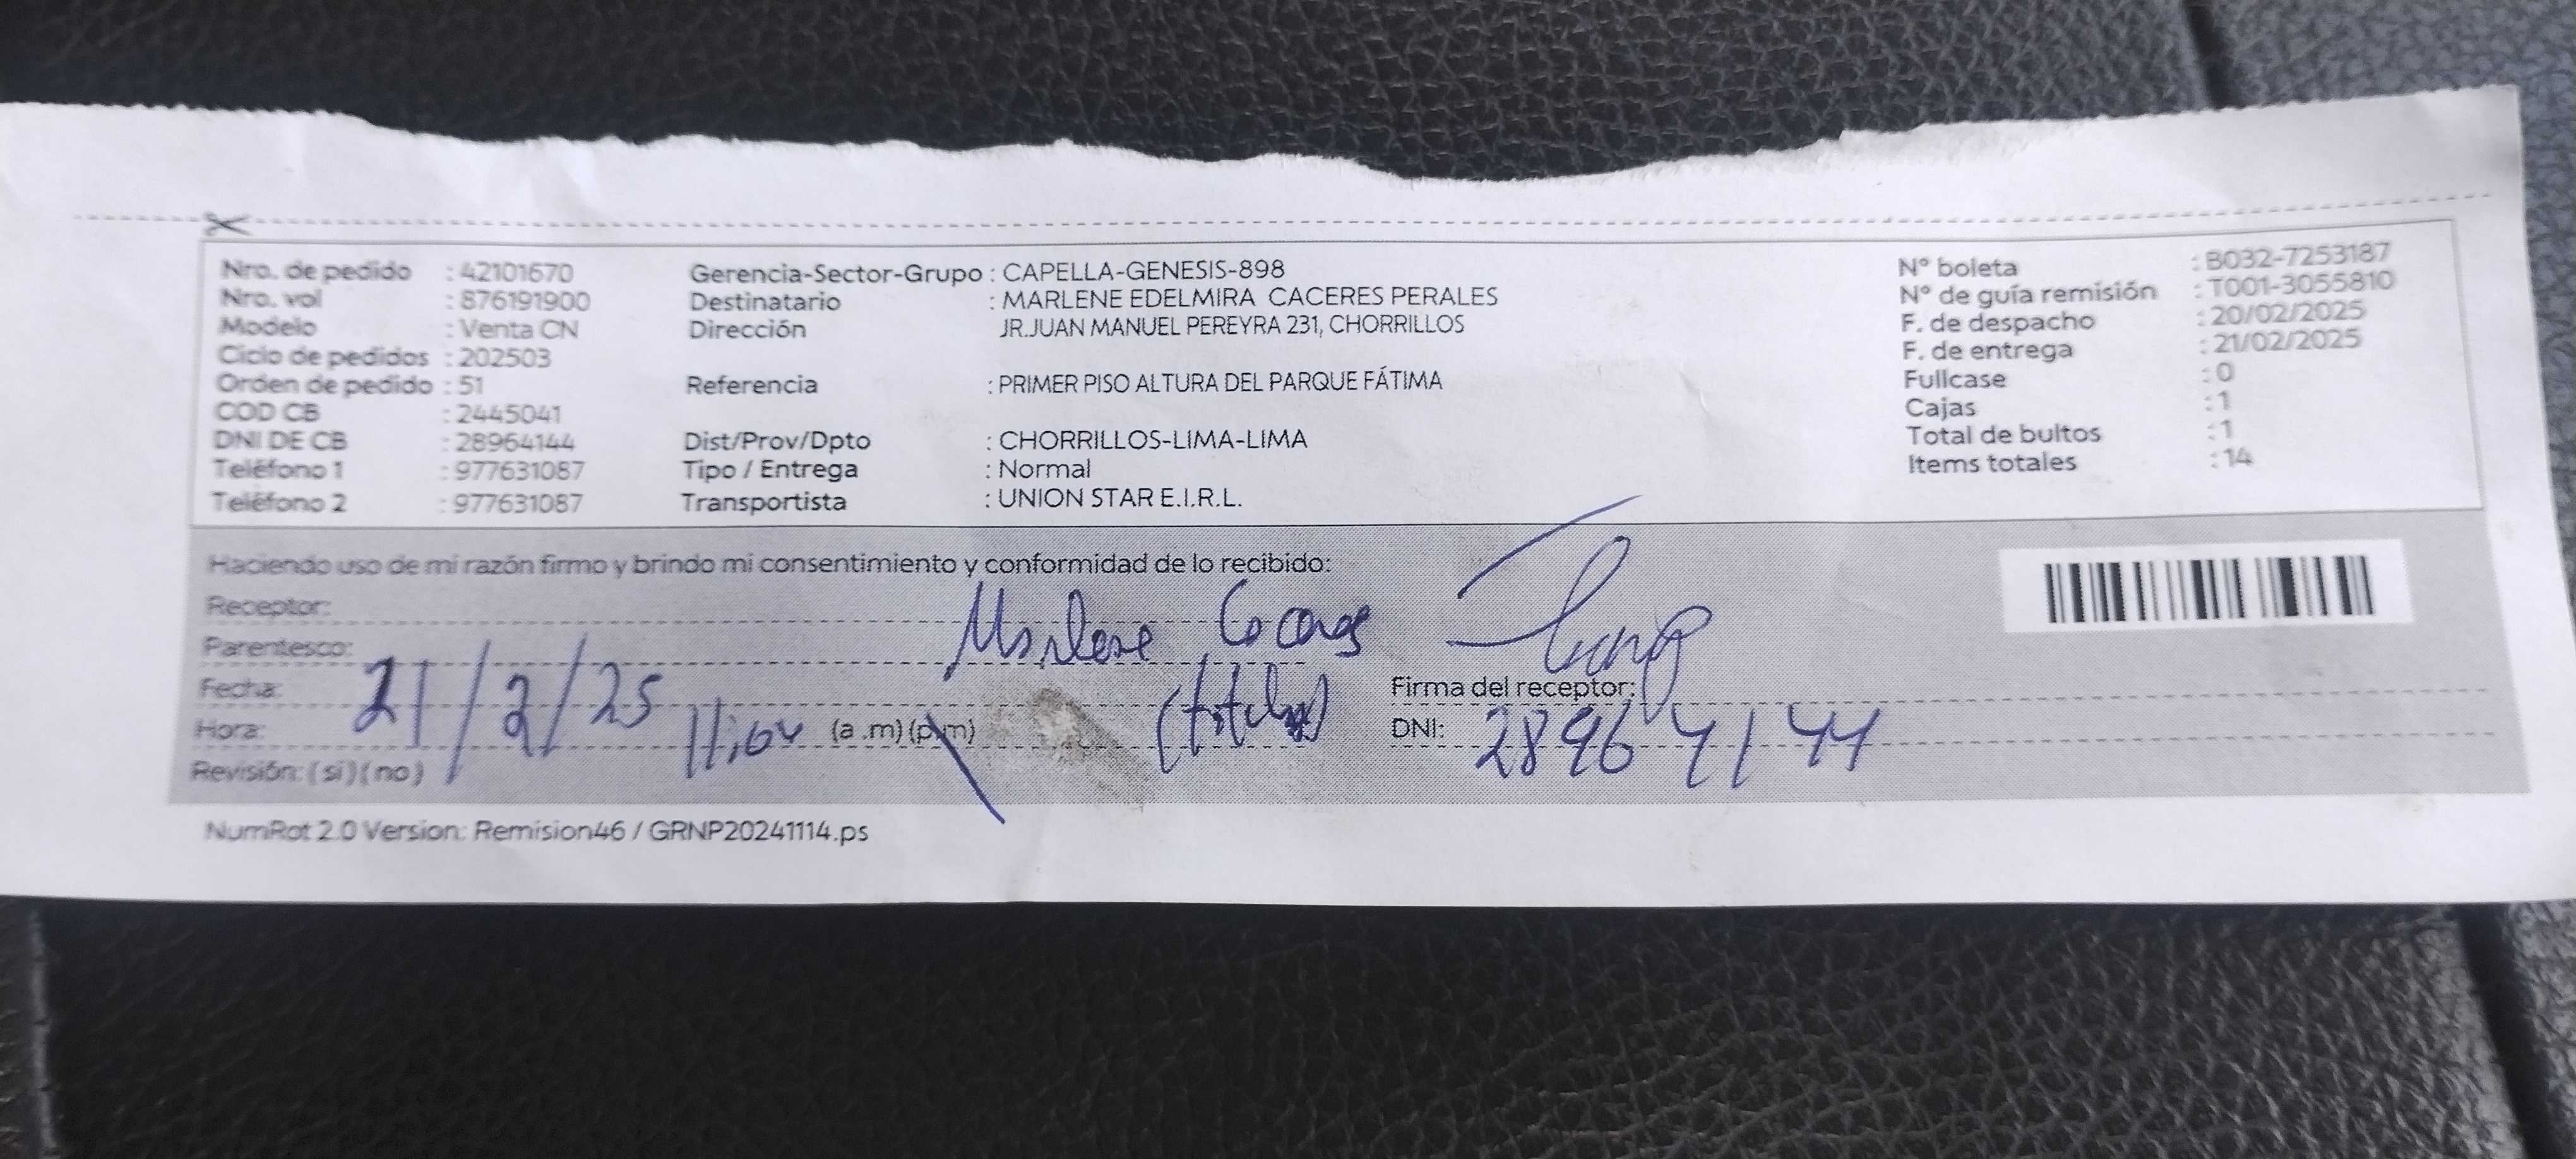 Nro. de pedido : 42101670
Nro. vol : 876191900
Modelo : Venta CN
Ciclo de pedidos : 202503
Orden de pedido : 51
COD CB : 2445041
DNI DE CB : 28964144
Teléfono 1 : 977631087
Teléfono 2 : 977631087
Gerencia-Sector-Grupo : CAPELLA-GENESIS-898
Destinatario : MARLENE EDELMIRA CACERES PERALES
Dirección JR.JUAN MANUEL PEREYRA 231, CHORRILLOS
Referencia : PRIMER PISO ALTURA DEL PARQUE FÁTIMA
Dist/Prov/Dpto : CHORRILLOS-LIMA-LIMA
Tipo / Entrega : Normal
Transportista : UNION STAR E.I.R.L.
N° boleta : B032-7253187
N° de guía remisión : T001-3055810
F. de despacho : 20/02/2025
F. de entrega : 21/02/2025
Fullcase : 0
Cajas : 1
Total de bultos : 1
Items totales : 14
Haciendo uso de mi razón firmo y brindo mi consentimiento y conformidad de lo recibido:
Receptor: Marlene
Parentesco:
Fecha: 21/2/25
Hora: (a .m) (p.m)
Revisión: ( si ) ( no )
Firma del receptor:
DNI: 28964144
NumRot 2.0 Version: Remision46 / GRNP20241114.ps